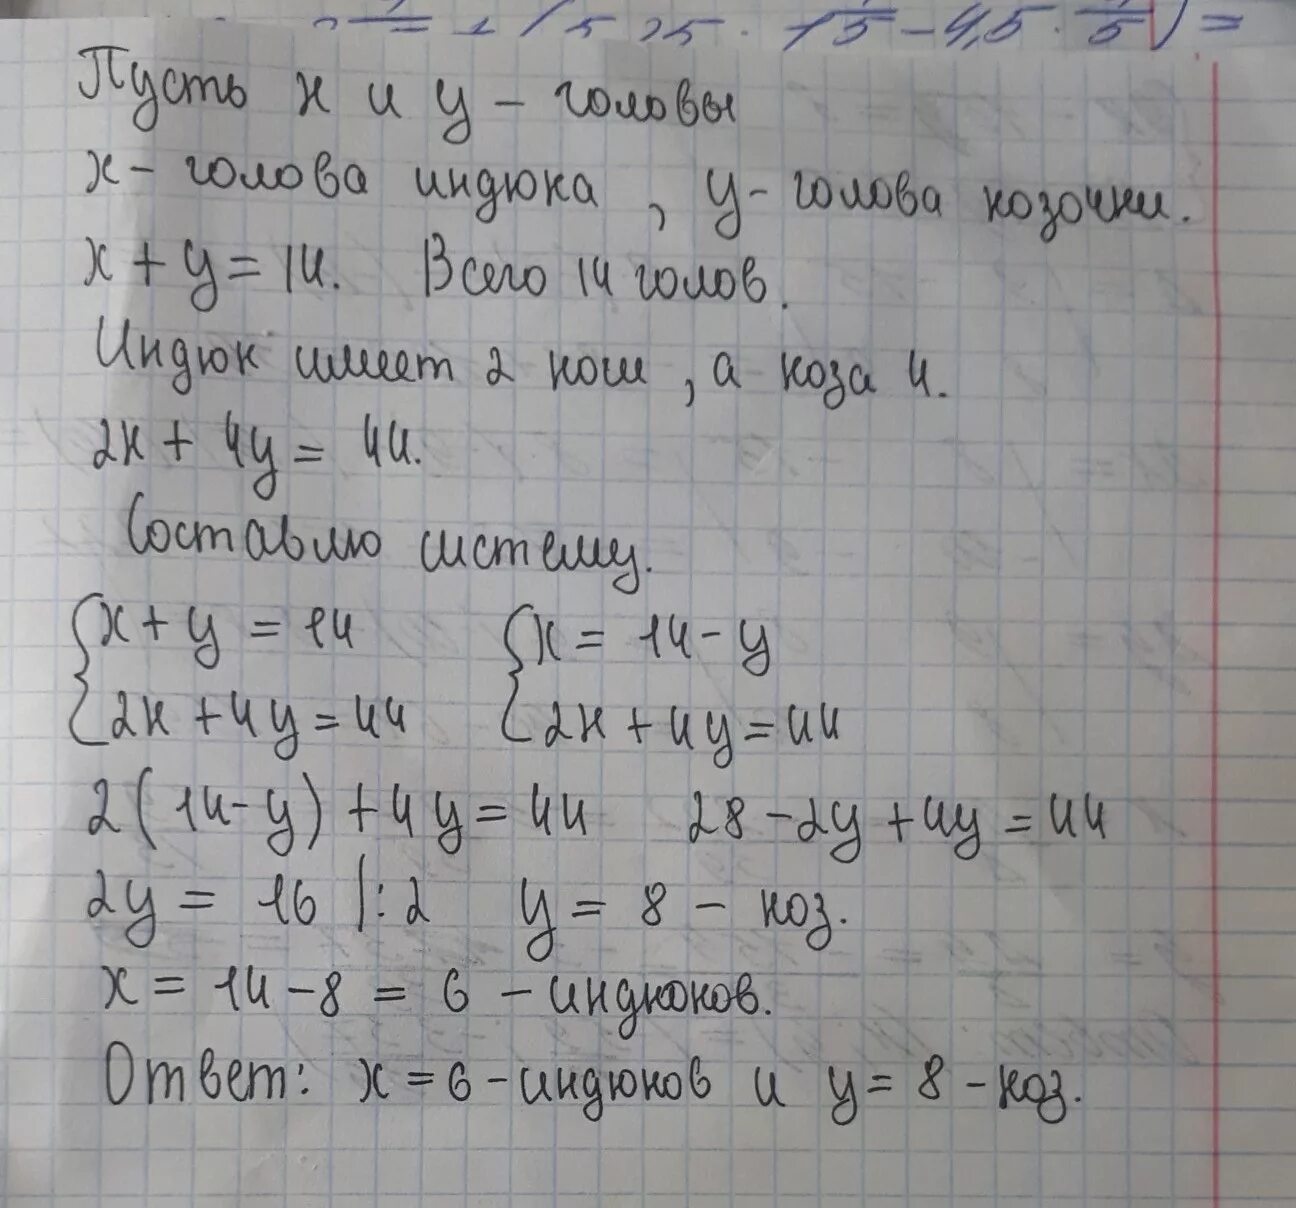 Пусть x и y - головы
x - голова индюка, y - голова козочки.
x + y = 14. Всего 14 голов.
Индюк имеет 2 ног, а коза 4.
2x + 4y = 44.
Составлю систему.
{x + y = 14 {x = 14 - y
{2x + 4y = 44 {2x + 4y = 44
2(14 - y) + 4y = 44 28 - 2y + 4y = 44
2y = 16 |:2 y = 8 - коз.
x = 14 - 8 = 6 - индюков.
Ответ: x = 6 - индюков и y = 8 - коз.